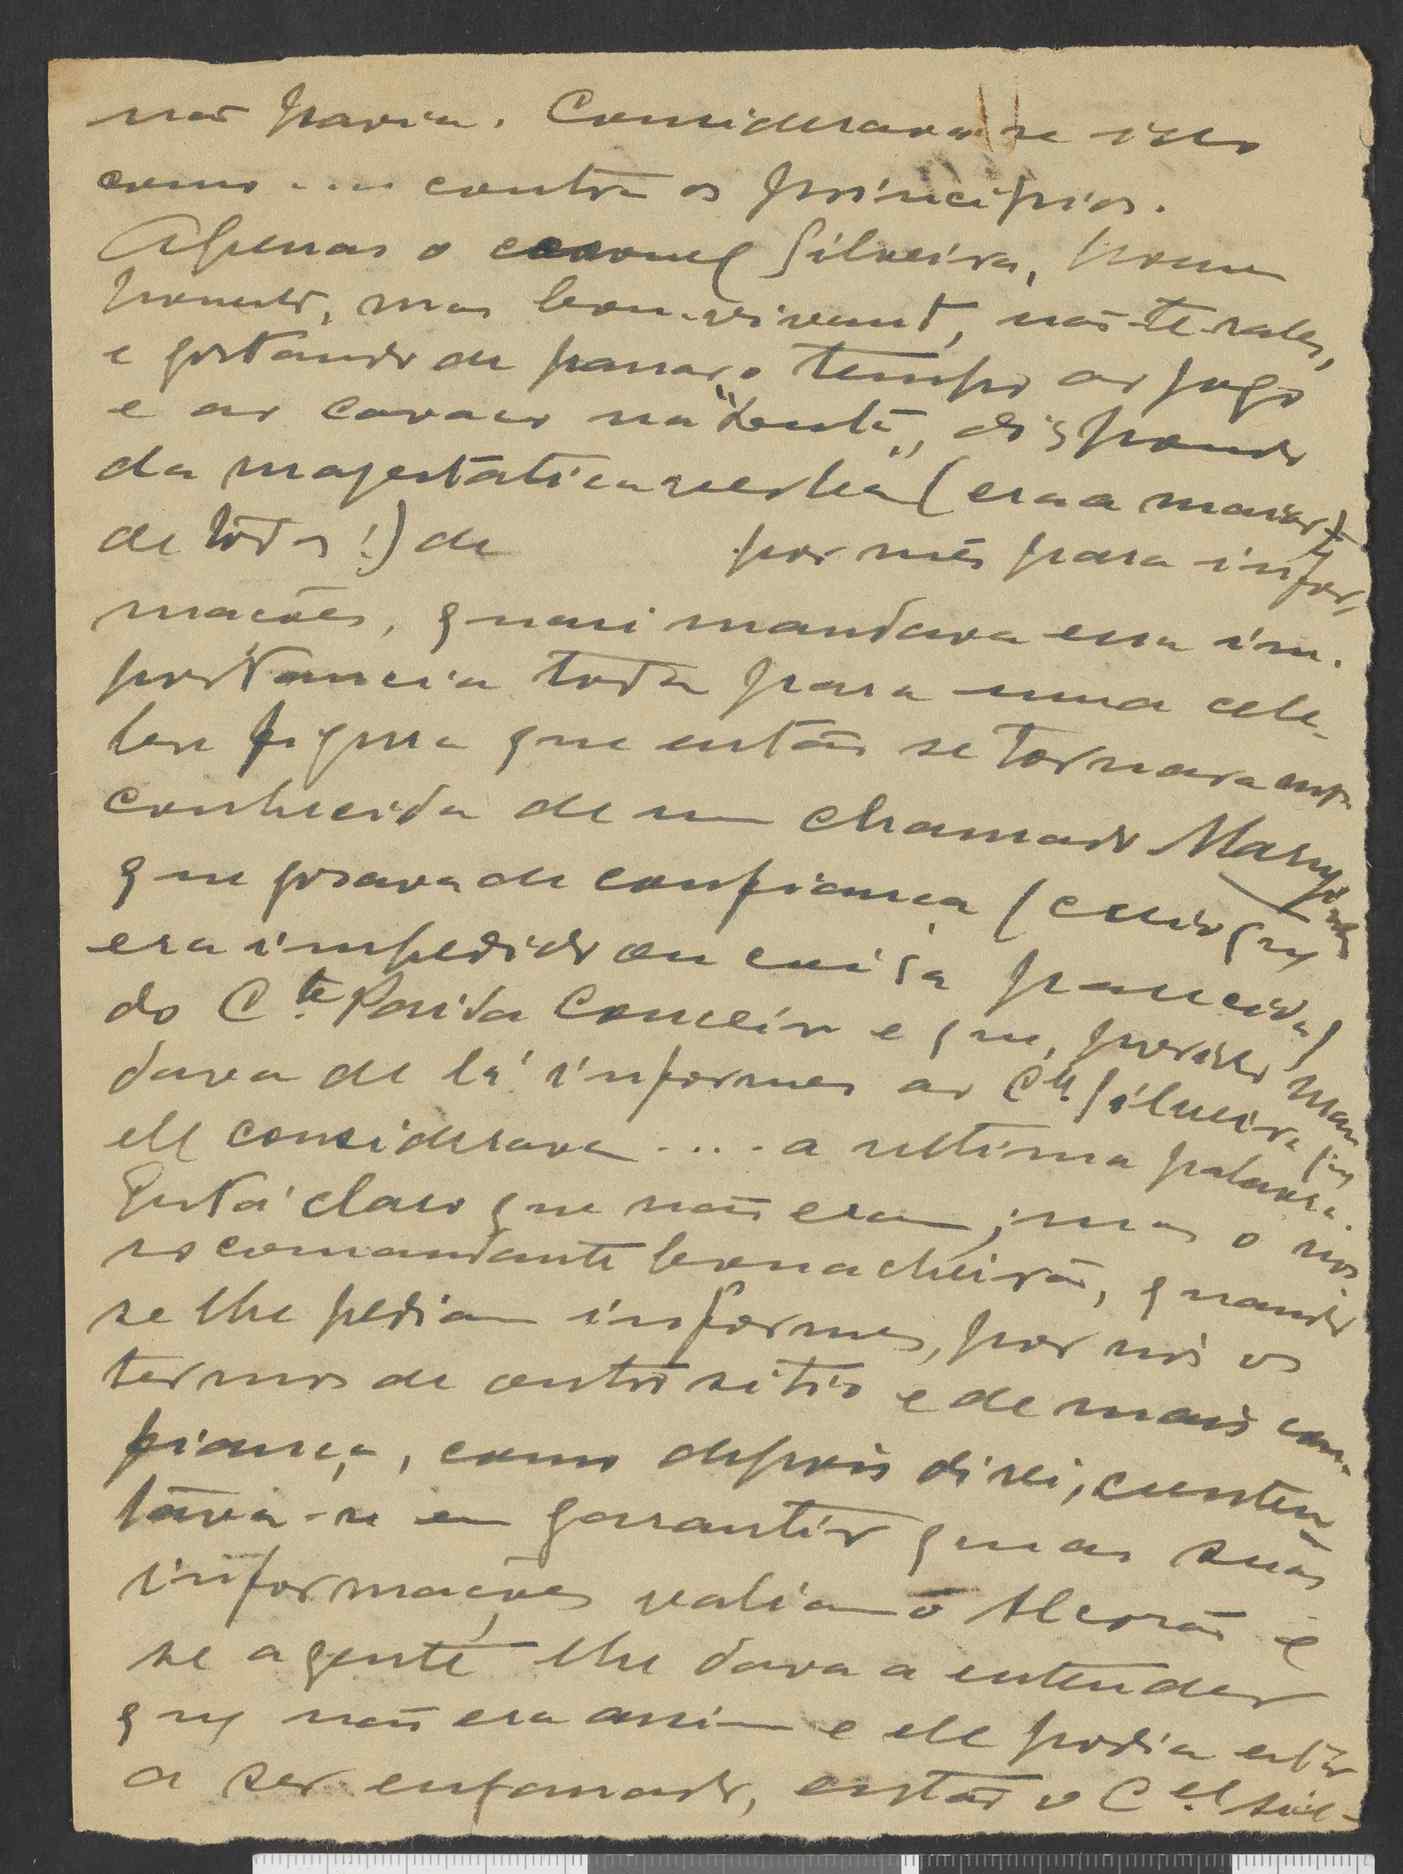 não havia. Considerava-se isso
como ... contra os principios.
Apenas o coronel Silveira, homem
honesto, mas bon-vivant, não te rales,
e gostando de passar o tempo ao jogo
e ao cavaco na "Lenta", dispondo
da majestatica verba (era a maior
de todas!) de por mês para infor-
mações, quasi mandava essa im-
portancia toda para uma cele-
bre figura que então se tornara
conhecida de um chamado
que gosava de confiança (creio que
era impedido ou coisa parecida)
do C.te Paiva Couceiro e que, por isso man
dava de lá informes ao C.el Silveira que
ele considerava .... a ultima palavra.
Está claro que não eram; mas o nos
so comandante bonacheirão, quando
se lhe pediam informes, por nós os
termos de outro sitio e de mais con-
fiança, como depois direi, conten-
tava-se em garantir que as suas
informações valiam o Alcorão e
se a gente lhe dava a entender
que não era assim e ele podia estar
a ser enganado, então o C.el Sil-